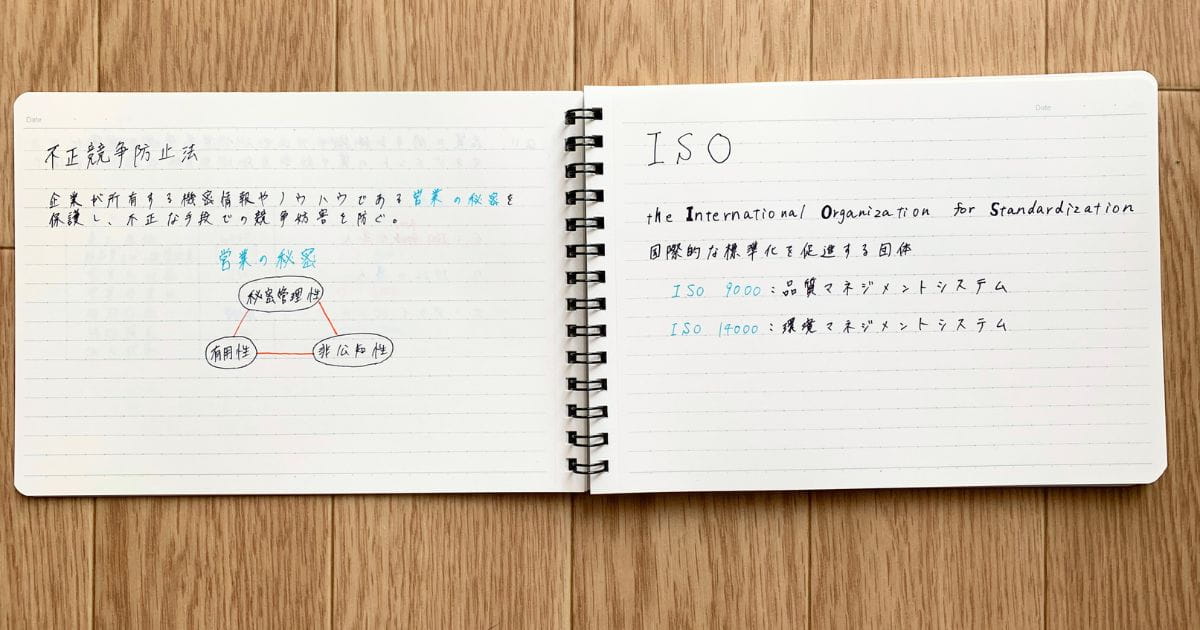 Date
不正競争防止法
企業が所有する機密情報やノウハウである営業の秘密を
保護し、不正な手段での競争妨害を防ぐ。
営業の秘密
秘密管理性
有用性
非公知性
Date
ISO
the International Organization for Standardization
国際的な標準化を促進する団体
ISO 9000：品質マネジメントシステム
ISO 14000：環境マネジメントシステム